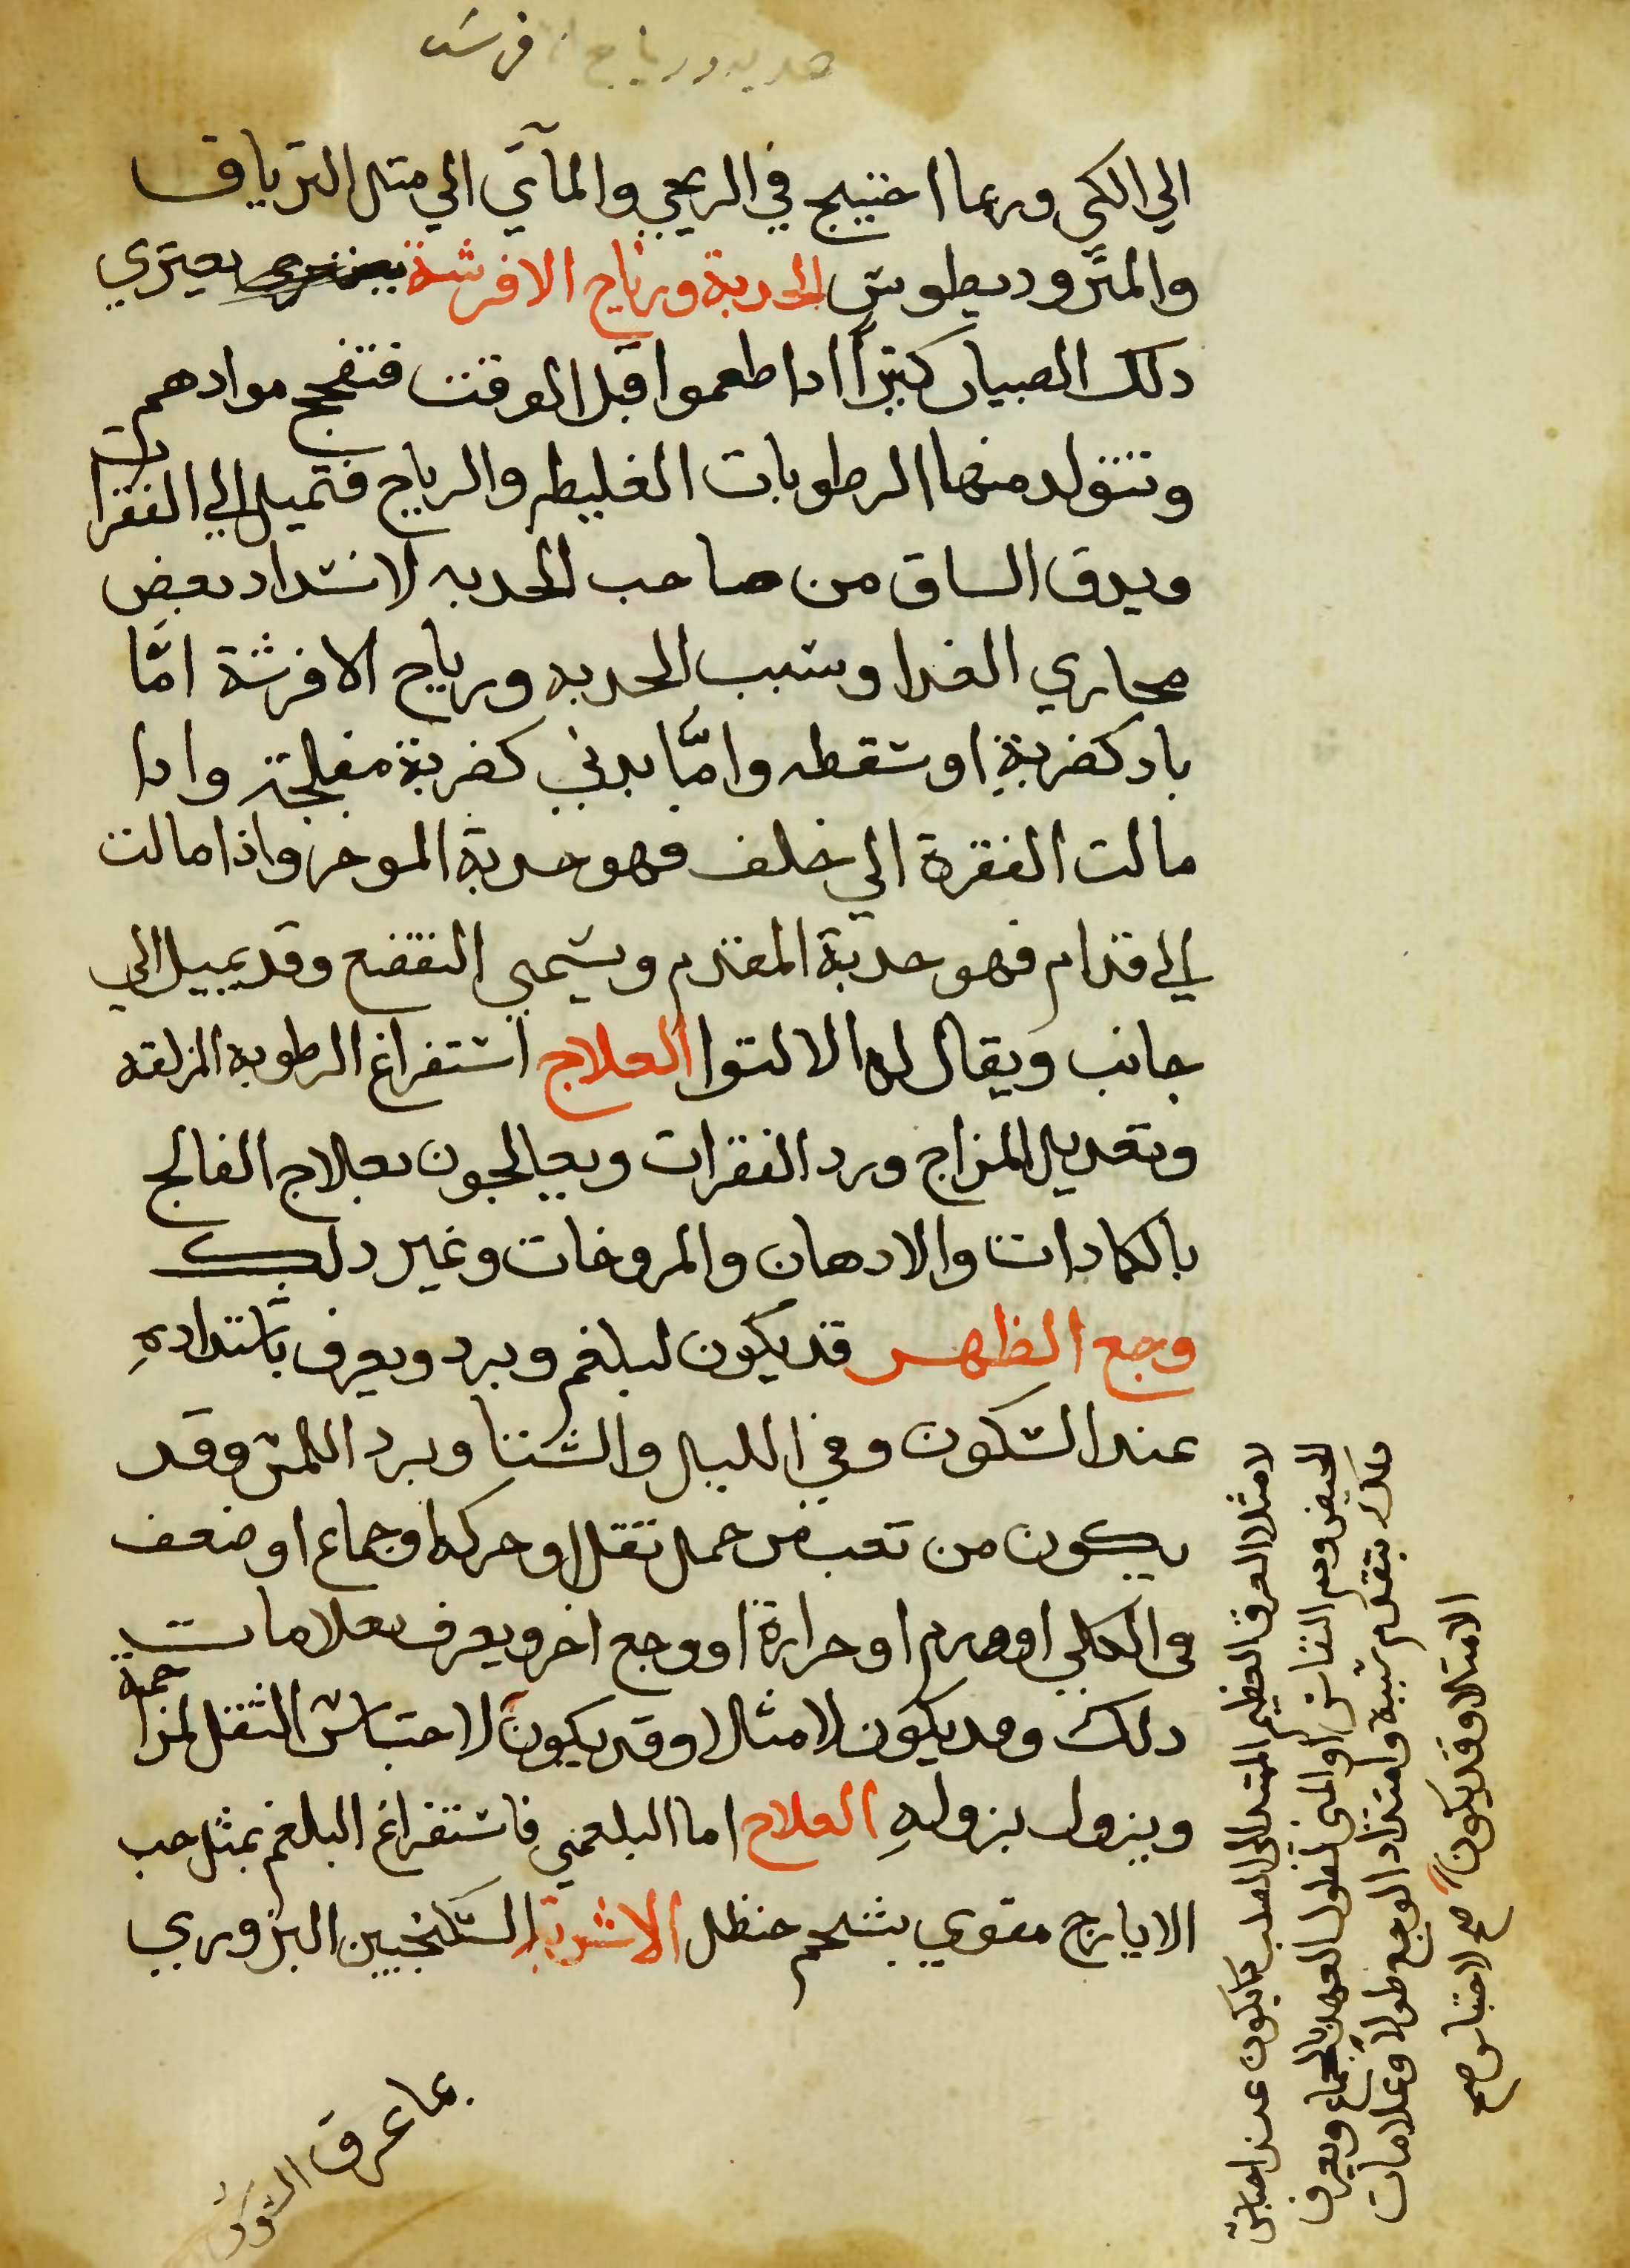 حدبه ورياح افرسه
الي الكي وربما احتيج في الريحي والمآي الي مثل الترياق
والمثروديطوس الحدبة ورياح الافرشة يعتري
دلك الصبيان كثيراً ادا طعموا قبل الوقت فتفجج موادهم
وتتولد منها الرطوبات الغليظه والرياح فتميل الي الفقرات
ويدق الساق من صاحب الحدبه لانسداد بعض
مجاري الغدا وسبب الحدبه ورياح الافرشة امّا
باد كضربةٍ او سقطه وامّا بدني كضربة مفلجة وادا
مالت الفقرة الي خلف فهو حدبة الموخر واذا مالت
الي قدام فهو حدبة المقدم ويسمي التقصع وقد يميل الي
جانب ويقال له الالتوا العلاج استفراغ الرطوبه المزلقه
وتعديل المزاج ورد الفقرات ويعالجون بعلاج الفالج
بالكمادات والادهان والمروخات وغير دلك
وجع الظهر قد يكون لبلغم وبرد ويعرف باشتدادهِ
عند السكون وفي الليل والشتا وبرد اللمس وقد
يكون من تعب من حمل ثقل او حركه او جماع او ضعف
في الكلي او ورم او حرارة او وجع اخر ويعرف بعلامات
دلك وقد يكون لامثلا وقد يكون لاحتباس الثقل لمزاحمة
ويزول بزولهِ العلاج اما البلغمي فاستفراغ البلغم بمثل حب
الايارج مقوي بشحم حنظل الاشربة السكنجبين البزوري
بما عرق
لامثلا العرق العظيم الممتد الي الصلب كما يكون عند احتباس
الحيض ودم النفاس او المني لطول العهد بالجماع ويعرف
دلك بتقدم سببه وامتداد الوجع طولاً وعلامات
الامتلا وقد يكون صح لاحتباس صح